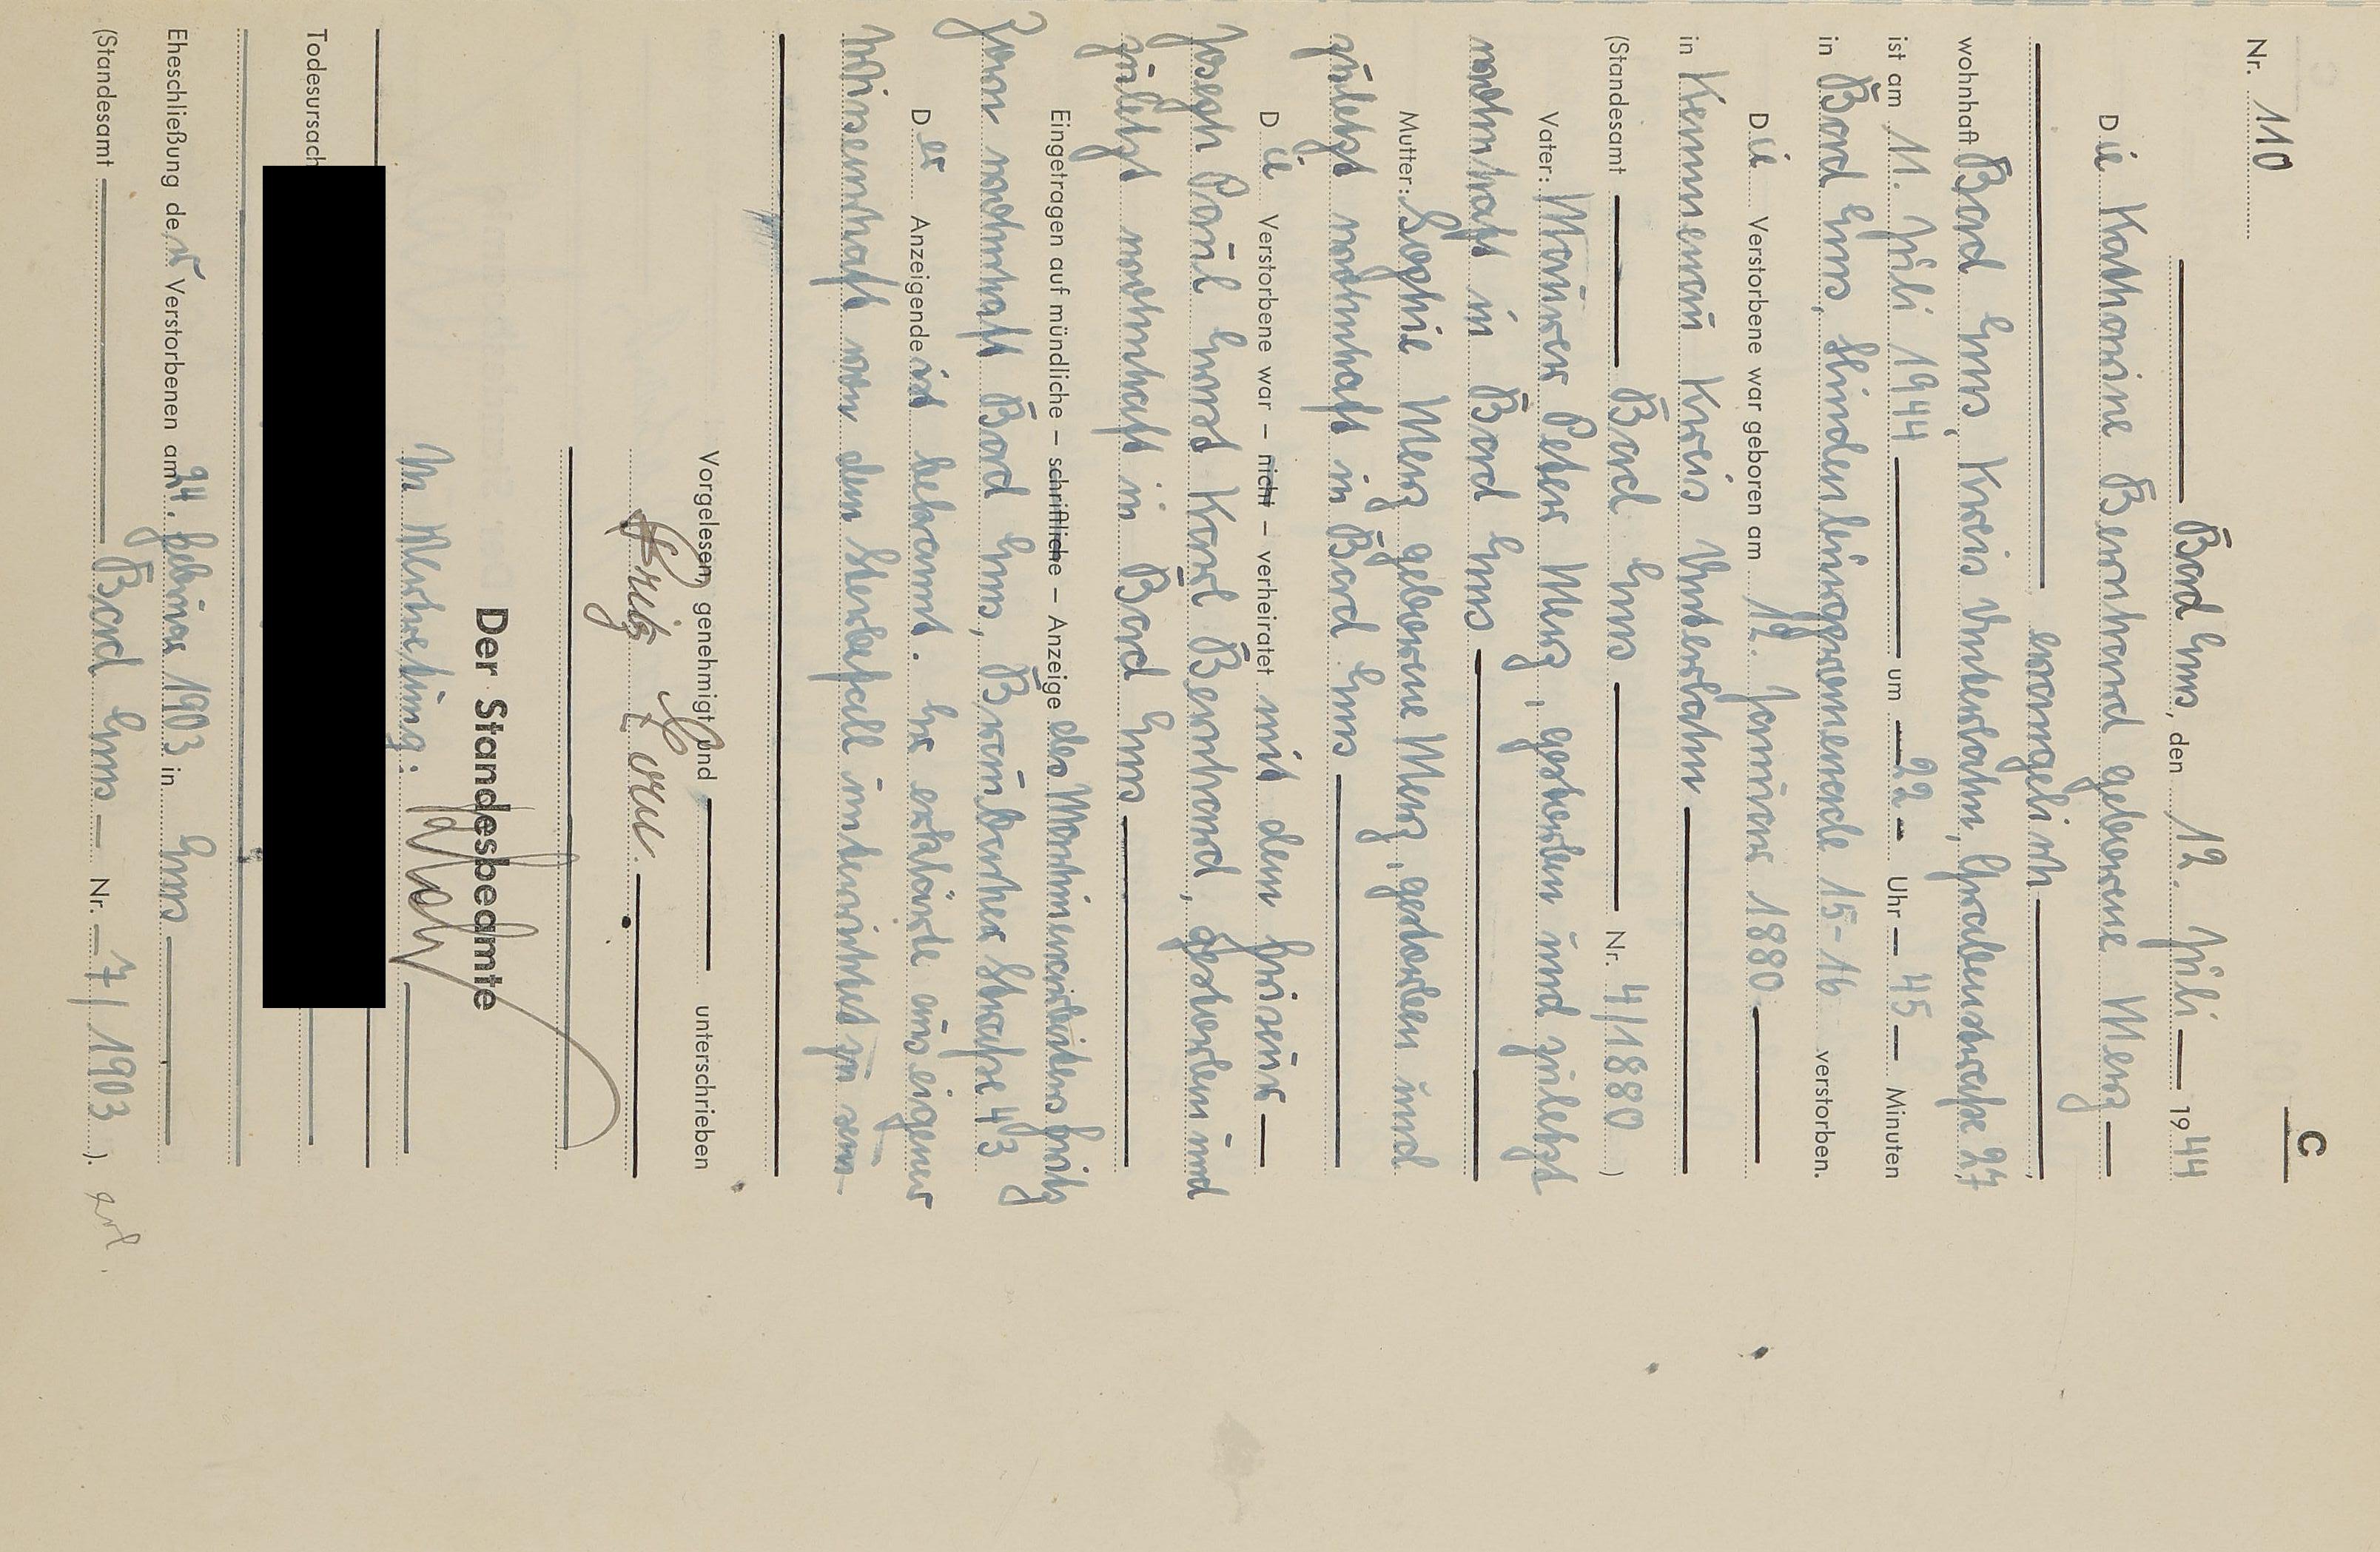 C
Nr. 110
Bad Ems, den 12. Juli 1944
Die Katharine Bernhard geborene Merz
evangelisch
wohnhaft Bad Ems, Kreis Unterlahn, Grabenstraße 27,
ist am 11. Juli 1944 um 22 Uhr 45 Minuten
in Bad Ems, Hindenburgpromenade 15-16 verstorben.
Die Verstorbene war geboren am 12. Januar 1880
in Kemmenau Kreis Unterlahn
(Standesamt Bad Ems Nr. 4/1880)
Vater: Maurer Peter Merz, gestorben und zuletzt
wohnhaft in Bad Ems
Mutter: Sophie Merz geborene Merz, gestorben und
zuletzt wohnhaft in Bad Ems
Die Verstorbene war – nicht – verheiratet mit dem Friseur
Joseph Paul Ernst Karl Bernhard, gestorben und
zuletzt wohnhaft in Bad Ems
Eingetragen auf mündliche – schriftliche – Anzeige des Maschinenarbeiters Fritz
Zorn wohnhaft Bad Ems, Braubacher Straße 43
Der Anzeigende ist bekannt. Er erklärte aus eigener
Wissenschaft von dem Sterbefall unterrichtet zu sein
Vorgelesen, genehmigt und unterschrieben
Fritz Zorn.
Der Standesbeamte
In Vertretung:
Todesursach
Eheschließung der Verstorbenen am 24. Februar 1903 in Ems
(Standesamt Bad Ems Nr. 7/1903).
erl.